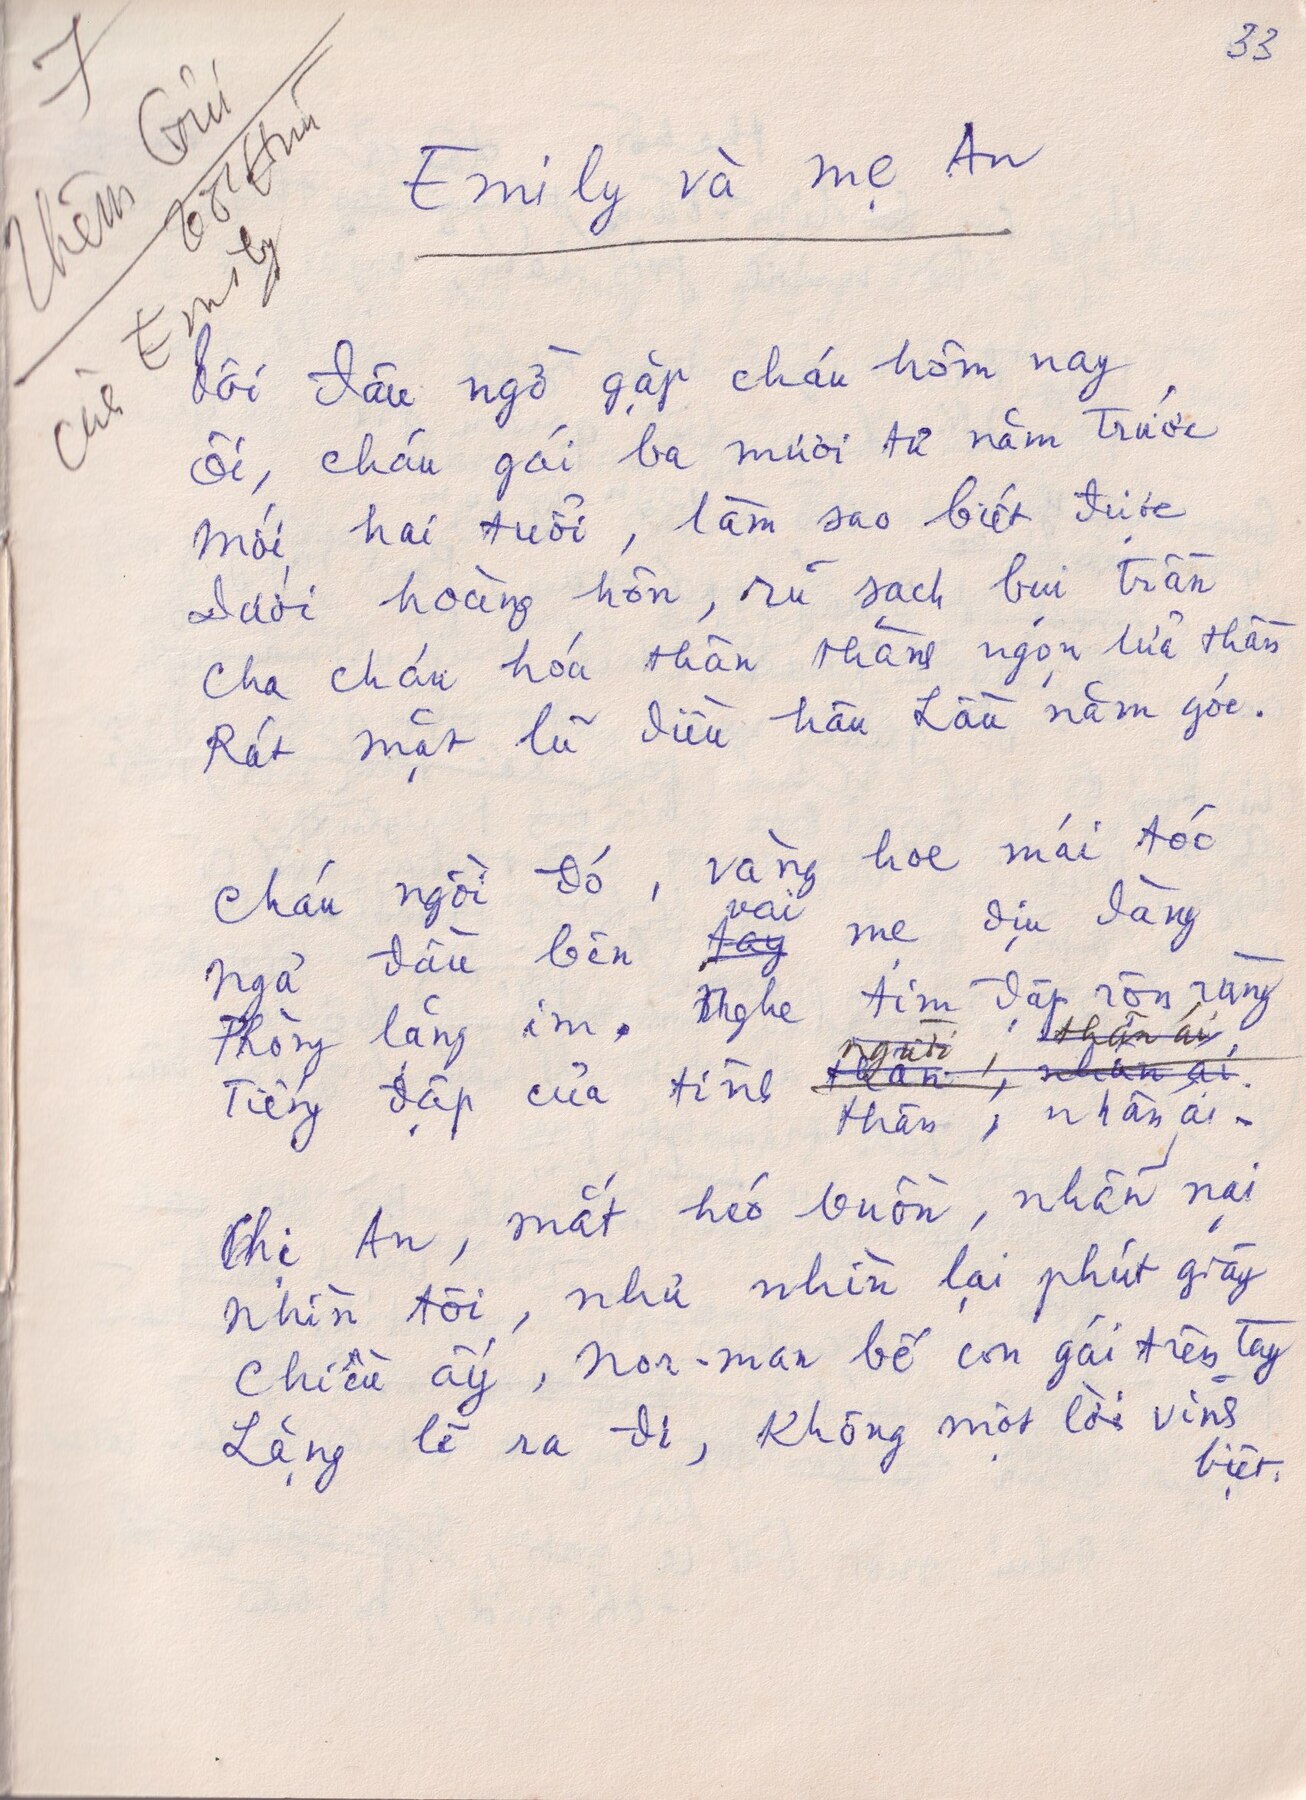 33
7
Thêm
của Emily
Emily và mẹ An
Tôi đâu ngờ gặp cháu hôm nay
Ôi, cháu gái ba mươi tư năm trước
Mới hai tuổi, làm sao biết được
Dưới hoàng hôn, rũ sạch bụi trần
Cha cháu hóa thân thành ngọn lửa thần
Rát mặt lũ diều hâu Lầu năm góc.
Cháu ngồi đó, vàng hoe mái tóc
vai
Ngả đầu bên tay mẹ dịu dàng
Phòng lặng im. Nghe tim đập rộn ràng
người, thân ái,
Tiếng đập của tình thân, nhân ái.
thân, nhân ái.
Chị An, mắt héo buồn, nhẫn nại
Nhìn tôi, như nhìn lại phút giây
Chiều ấy, Nor-man bế con gái trên tay
Lặng lẽ ra đi, không một lời vĩnh
biệt.